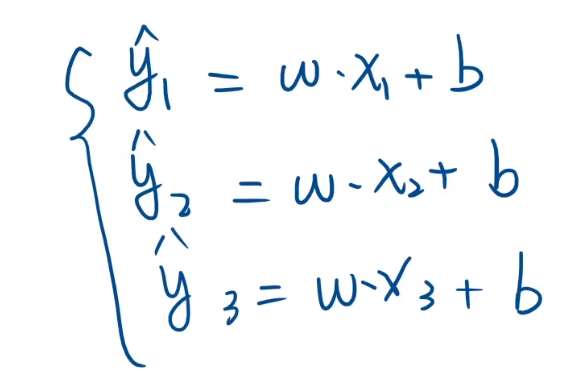 ŷ₁ = w·x₁ + b
ŷ₂ = w·x₂ + b
ŷ₃ = w·x₃ + b